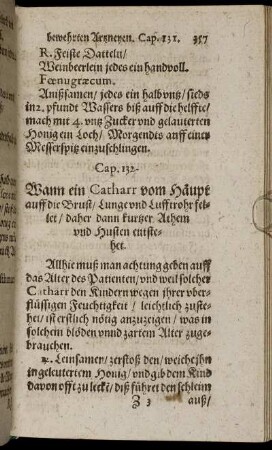 bewehrten Artzneyen. Cap. 131. 357
R. Feiste Datteln/
Weinbeerlein jedes ein handvoll.
Fœnugræcum.
Anißsamen/ jedes ein halb vntz/ sieds
in 2. pfundt Wassers biß auff die helffte/
mach mit 4. vntz Zucker vnd geläuterten
Honig ein Loch/ Morgendts auff einer
Messerspitz einzuschlingen.
Cap. 132.
Wann ein Catharr vom Häupt
auff die Brust/ Lunge vnd Lufftrohr fel-
let/ daher dann kurtzer Athem
vnd Husten entste-
het.
Allhie muß man achtung geben auff
das Alter des Patienten/ vnd weil solcher
Catharr den Kindern wegen jhrer vber-
flüssigen Feuchtigkeit/ leichtlich zuste-
het/ ist erstlich nötig anzuzeigen/ was in
solchem blöden vnnd zartem Alter zuge-
brauchen.
R. Leinsamen/ zerstoß den/ weiche jhn
in geleutertem Honig/ vnd gib dem Kind
davon offt zu lecken/ diß führet den schleim
Z 3 auß/